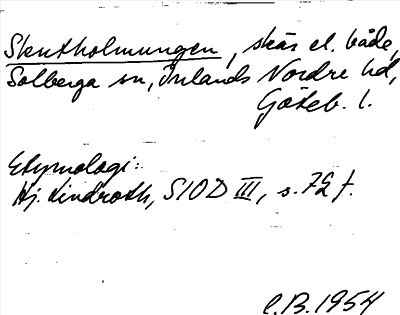 Skutholmungen, skär el. både,
Solberga sn, Inlands Nordre hd,
Göteb. l.
Etymologi:
Hj. Lindroth, SIOD III, s. 72 f.
C.B. 1954